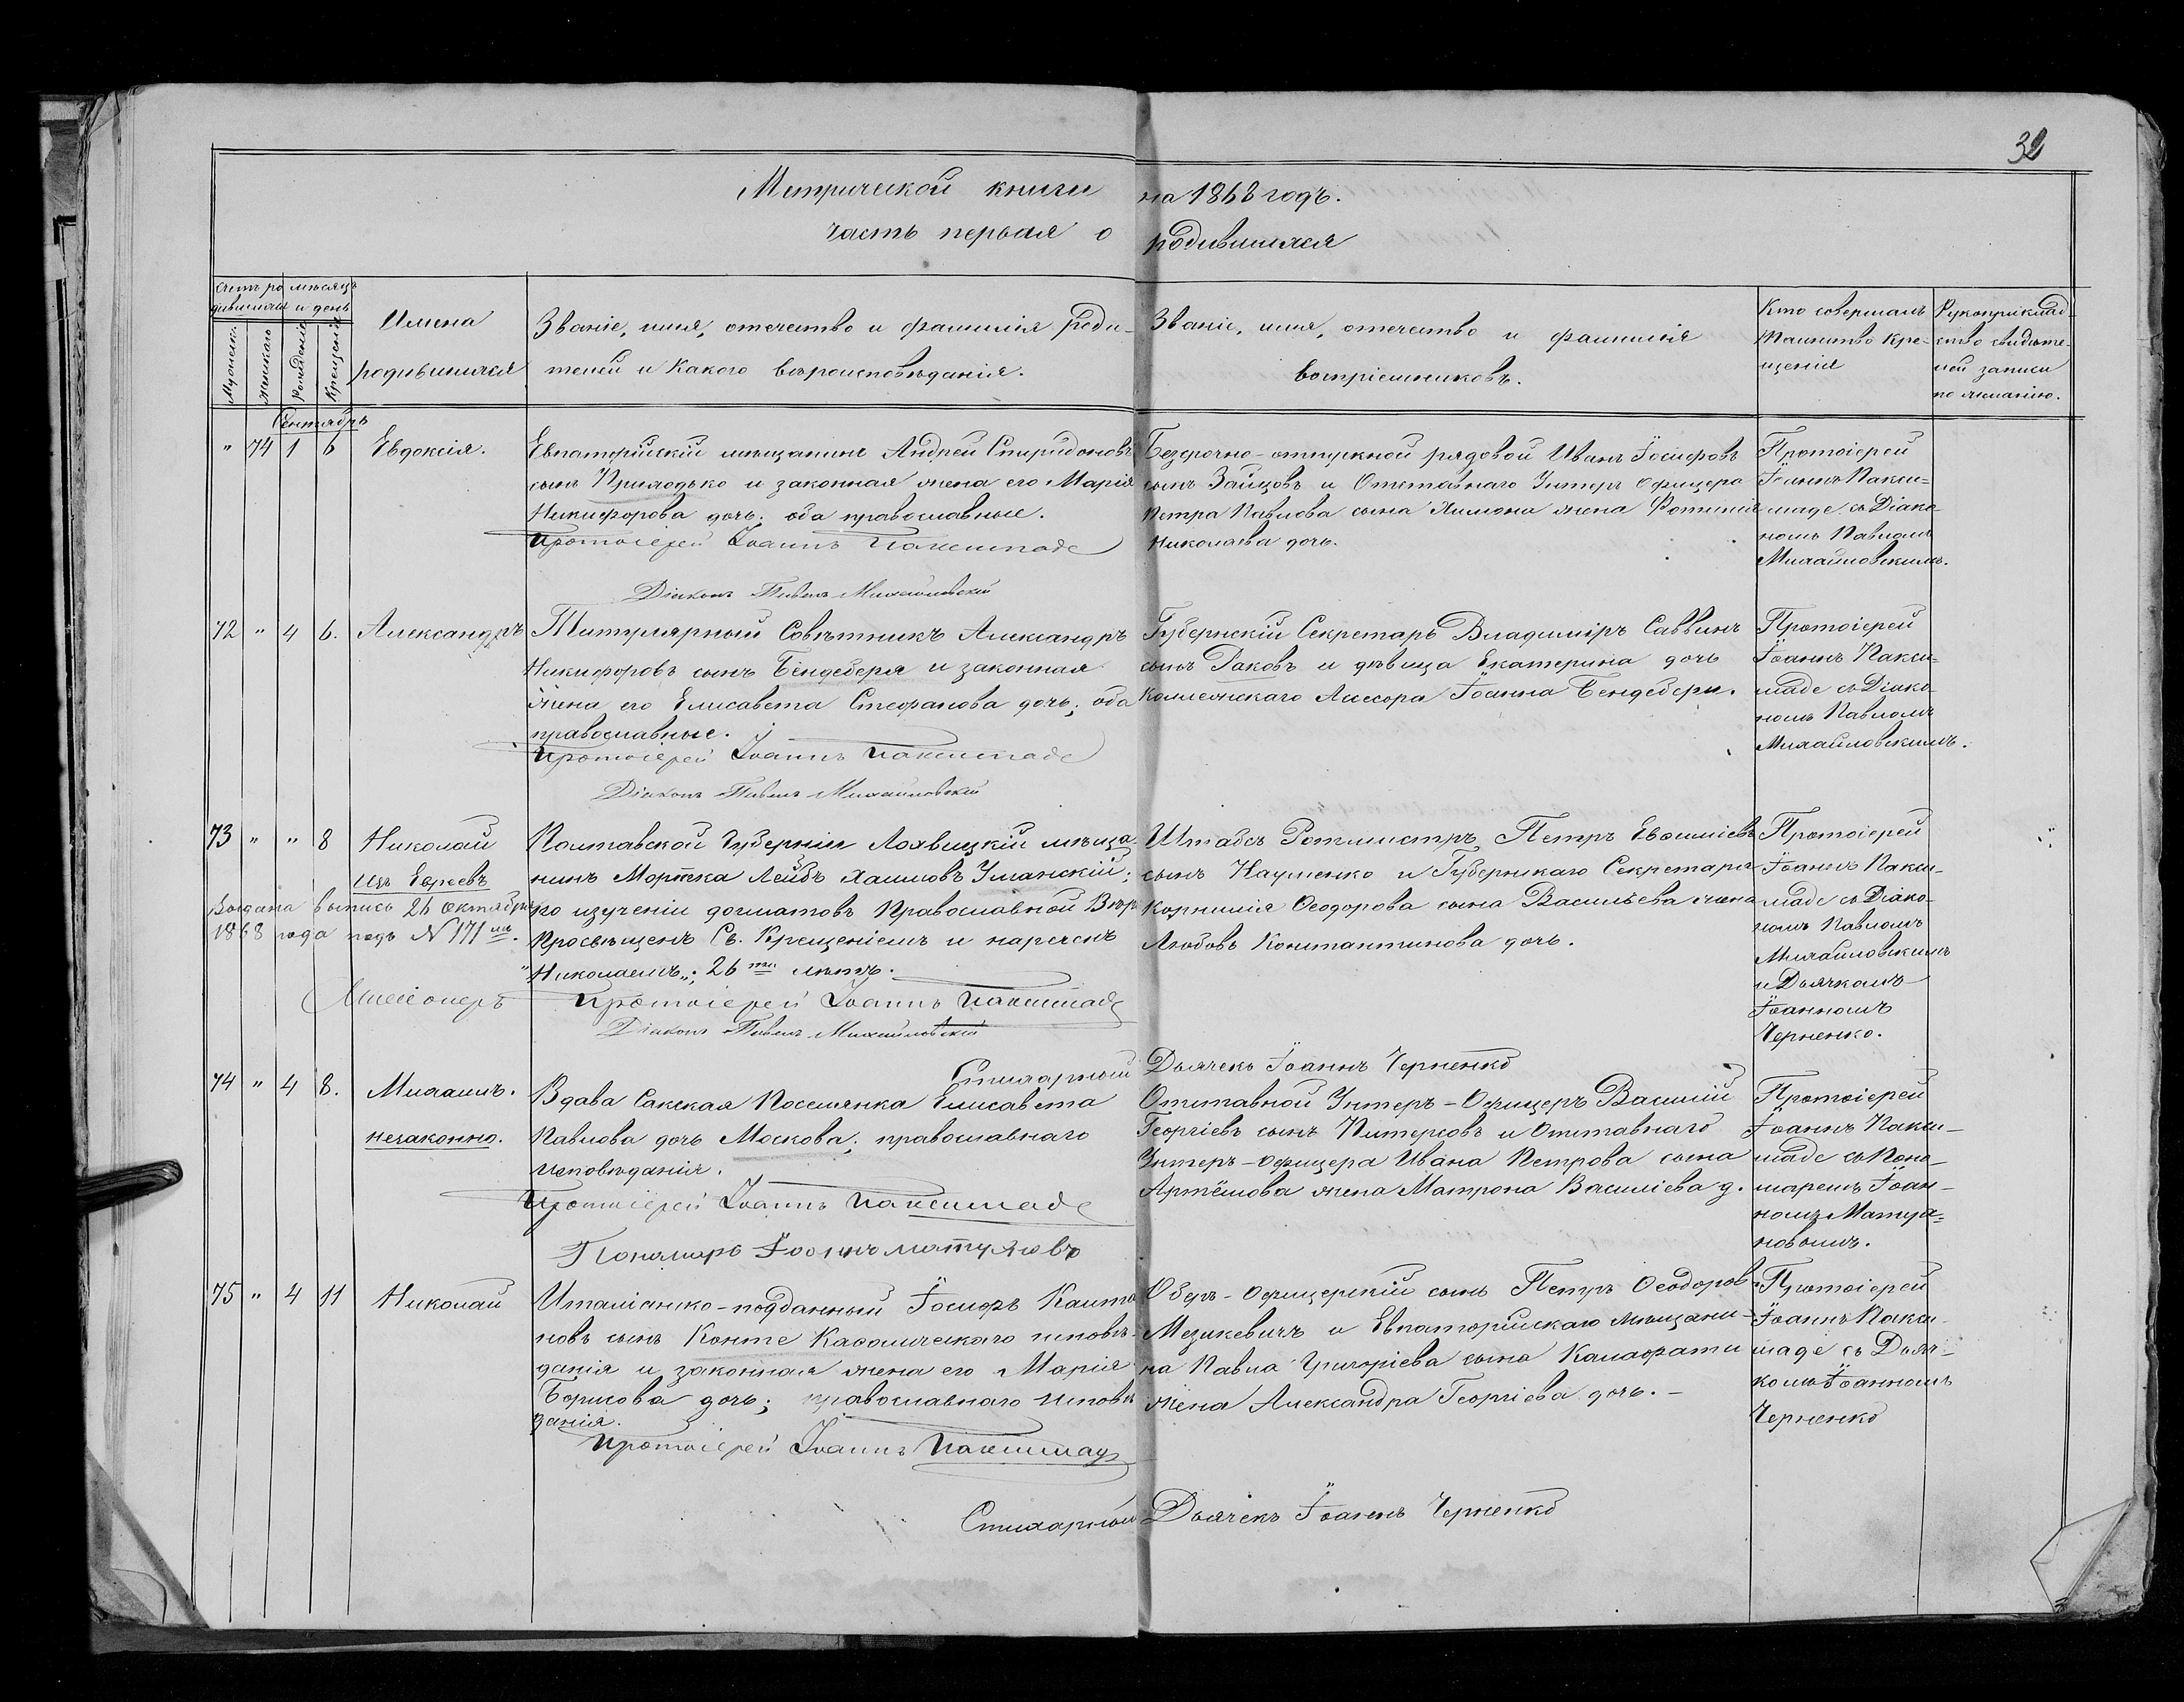 32
Метрической книги на 1868 годъ.
часть первая о родившихся
Счетъ ро
дившихся
мѣсяцъ
и день
Мужеск.
Женскаго
Рожденія
Крещенія
Имена
родившихся
Званіе, имя, отчество и фамилія роди-
телей и Какого вѣроисповѣданія.
Званіе, имя, отчество и фамилія
воспріемниковъ.
Кто совершалъ
Таинство Кре-
щенія
Рукоприклад-
ство свидѣте-
лей записи
по желанію.
Сентябрь
" 74 1 6 Евдоксія.
Евпаторійскій мѣщанинъ Андрей Спиридоновъ
сынъ Приходько и законная жена его Марія
Никифорова дочь; оба православные.
Протоіерей Іоаннъ Паксимаде
Діаконъ Павелъ Михайловскій
Безсрочно-отпускной рядовой Иванъ Іосифовъ
сынъ Зайцовъ и Отставнаго Унтеръ Офицера
Петра Павлова сына Химона жена Фотинія
Николаева дочь.
Протоіерей
Іоаннъ Пакси=
маде съ Діако
номъ Павломъ
Михайловскимъ.
72 " 4 6. Александръ
Титулярный Совѣтникъ Александръ
Никифоровъ сынъ Бендебери и законная
жена его Елисавета Стефанова дочь; оба
православные.
Протоіерей Іоаннъ Паксимаде
Діаконъ Павелъ Михайловскій
Губернскій Секретарь Владиміръ Саввинъ
сынъ Раковъ и дѣвица Екатерина дочь
Коллежскаго Ассесора Іоанна Бендебери.
Протоіерей
Іоаннъ Пакси-
маде съ Діако-
номъ Павломъ
Михайловскимъ.
73 " " 8 Николай
Изъ Евреевъ
Выдана выпись 26 октября
1868 года подъ № 171мъ.
Миссіонеръ
Полтавской Губерніи Лохвицкій мѣща-
нинъ Мортка Лейбъ Хаимовъ Уманскій;
по изученіи догматовъ Православной Вѣры
Просвѣщенъ Св. Крещеніемъ и нареченъ
"Николаемъ"; 26ти лѣтъ.
Протоіерей Іоаннъ Паксимаде
Діаконъ Павелъ Михайловскій
Стихарный Дьячекъ Іоаннъ Черненко
Штабсъ Ротмистръ Петръ Евфиміевъ
сынъ Науменко и Губернскаго Секретаря
Корнилія Ѳеодорова сына Васильева жена
Любовь Константинова дочь.
Протоіерей
Іоаннъ Пакси-
маде съ Діако-
номъ Павломъ
Михайловскимъ
и Дьячкомъ
Іоанномъ
Черненко.
74 " 4 8. Михаилъ.
незаконно.
Вдава Сакская Поселянка Елисавета
Павлова дочь Москова; православнаго
исповѣданія.
Протоіерей Іоаннъ Паксимаде
Пономарь Іоаннъ Матуновъ
Отставной Унтеръ-Офицеръ Василій
Георгіевъ сынъ Питерсовъ и Отставнаго
Унтеръ-Офицера Ивана Петрова сына
Артёмова жена Матрона Василіева д.
Протоіерей
Іоаннъ Пакси-
маде съ Поно-
маремъ Іоан-
номъ Матуя=
новымъ.
75 " 4 11 Николай
Италіанско-подданный Іосифъ Каито
новъ сынъ Конте Каѳолическаго исповѣ-
данія и законная жена его Марія
Борисова дочь; православнаго исповѣ
данія.
Протоіерей Іоаннъ Паксимаде
Стихарный Дьячекъ Іоаннъ Черненко
Оберъ-Офицерскій сынъ Петръ Ѳеодоровъ
Мезикевичъ и Евпаторійскаго мѣщани-
на Павла Григоріева сына Калафати
жена Александра Георгіева дочь. -
Протоіерей
Іоаннъ Пакси-
маде съ Дьяч-
комъ Іоанномъ
Черненко